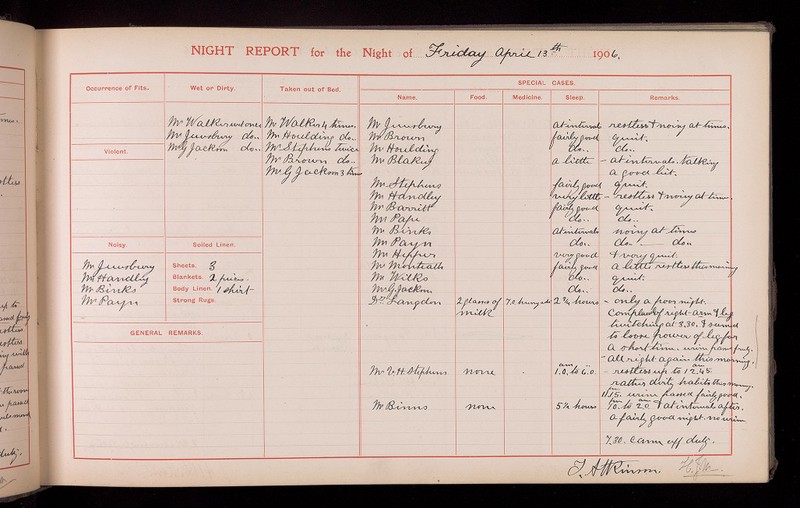 NIGHT REPORT for the Night of Friday April 13th 1906.
Occurrence of Fits.
Wet or Dirty.
Taken out of Bed.
SPECIAL CASES.
Name.
Food.
Medicine.
Sleep.
Remarks.
Mr Walker wet once
Mr Jewsbury do..
Mr G Jackson do..
Mr Walker 4 times
Mr Houlding do..
Mr Stephens twice
Mr Brown do..
Mr G Jackson 3 times
Violent.
Noisy.
Mr Jewsbury
Mr Handley
Mr Binks
Mr Payn
Soiled Linen
Sheets. 3
Blankets. 2 pieces.
Body Linen. 1 shirt
Strong Rugs.
GENERAL REMARKS.
Mr Jewsbury at intervals restless & noisy at times.
Mr Brown fairly good quiet.
Mr Houlding do.. do..
Mr Blakey a little - at intervals. talking
a good bit.
Mr Stephens fairly good quiet.
Mr Handley very little - restless & noisy at times.
Mr Barritt fairly good quiet.
Mr Pape do.. do..
Mr Binks at intervals noisy at times
Mr Payn do.. do. do..
Mr very good & very quiet.
Mr Monteath fairly good a little restless this morning
Mr Wilks do.. quiet.
Mr G Jackson do.. do.
Dr Langdon 2 glasses of 2¾ hours - only a poor night.
milk complains of right arm & leg
twitching at 3.30. & seemed
to loose power of leg for
a short time. urine passed freely.
- All right again this morning.
Mr V. H. Stephens none 1.0. to 6.0. - restless up to 12.45.
rather dirty habits this morning.
urine passed fairly good.
Mr Binns none 5¼ hours 10. to 2.0 & at intervals after.
a fairly good night. no urine
7.30. came off duty.
T. Atkinson.